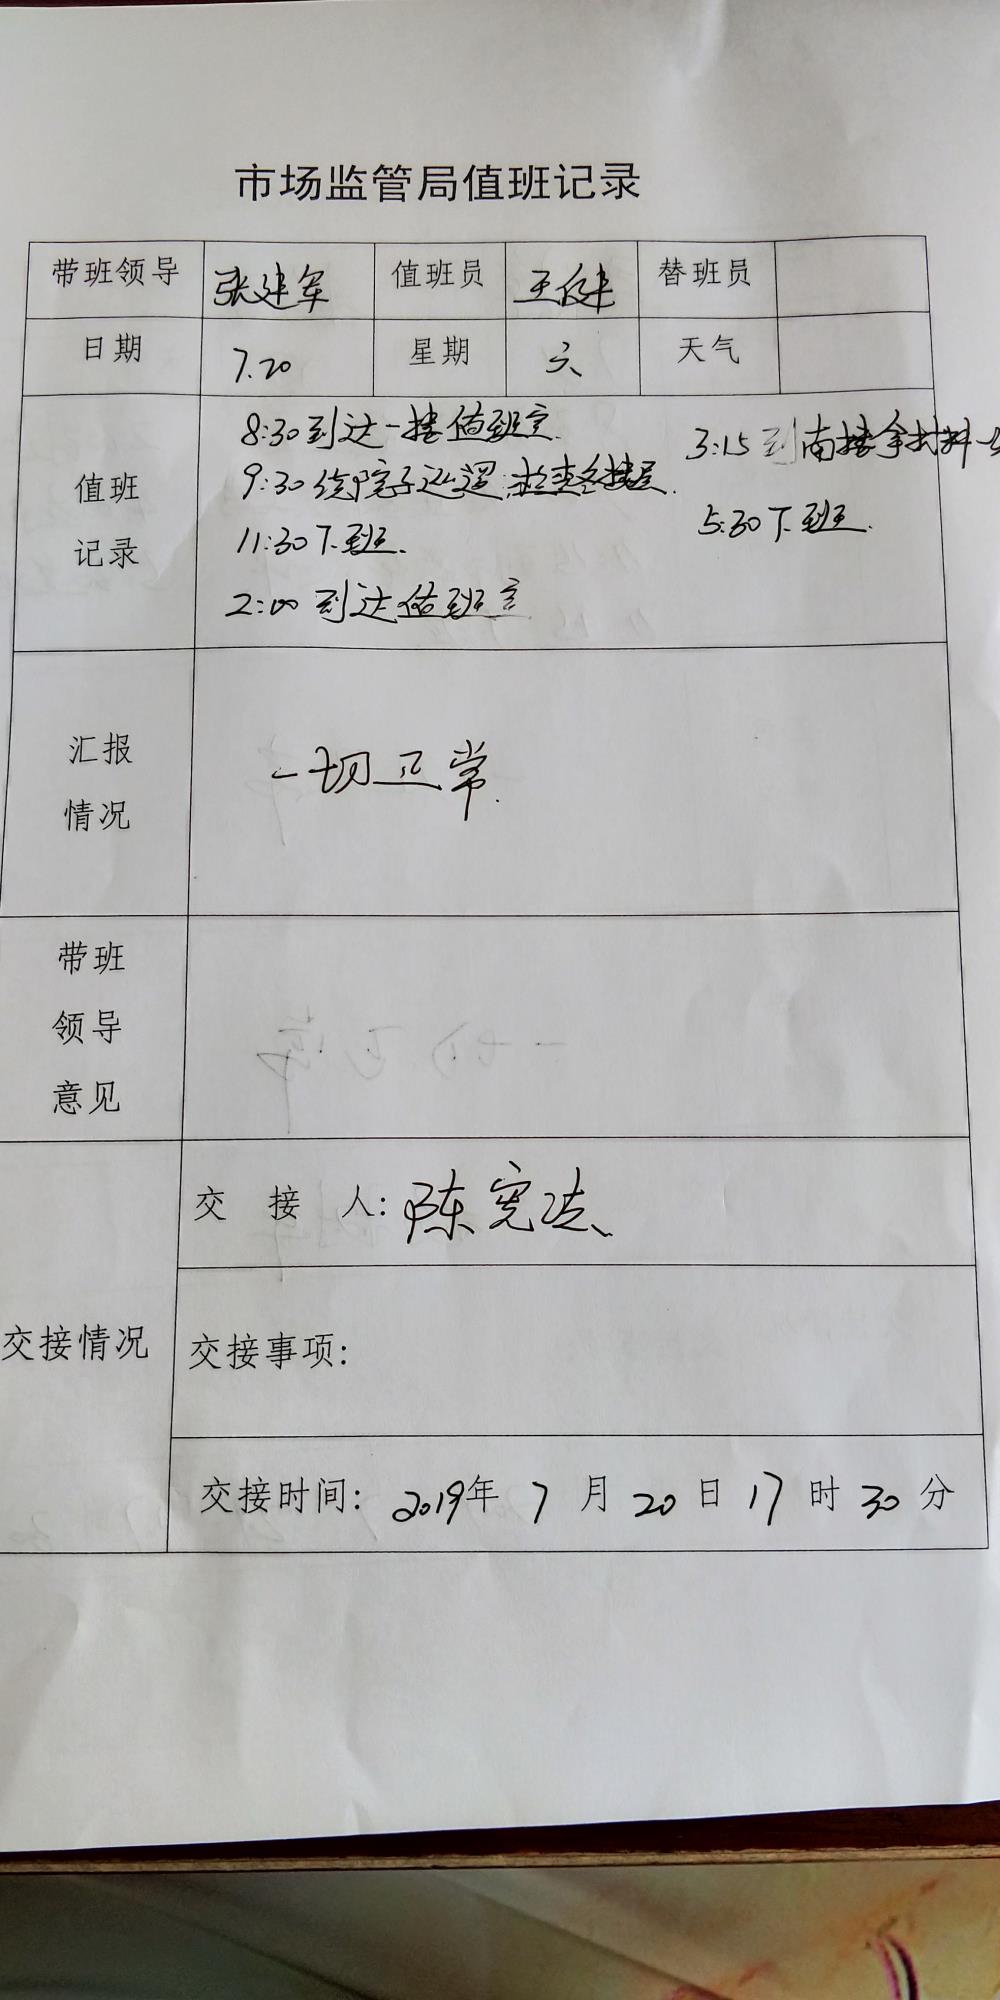 市场监管局值班记录
带班领导 张建军 值班员 王俊 替班员
日期 7.20 星期 六 天气
值班
记录
8:30到达一楼值班室.
9:30绕院子巡逻.检查各楼层.
11:30下班.
2:00到达值班室
3:15到南楼拿材料一
5:30下班.
汇报
情况
一切正常.
带班
领导
意见
交接情况
交 接 人: 陈宪法
交接事项:
交接时间: 2019年 7 月 20 日 17 时 30 分